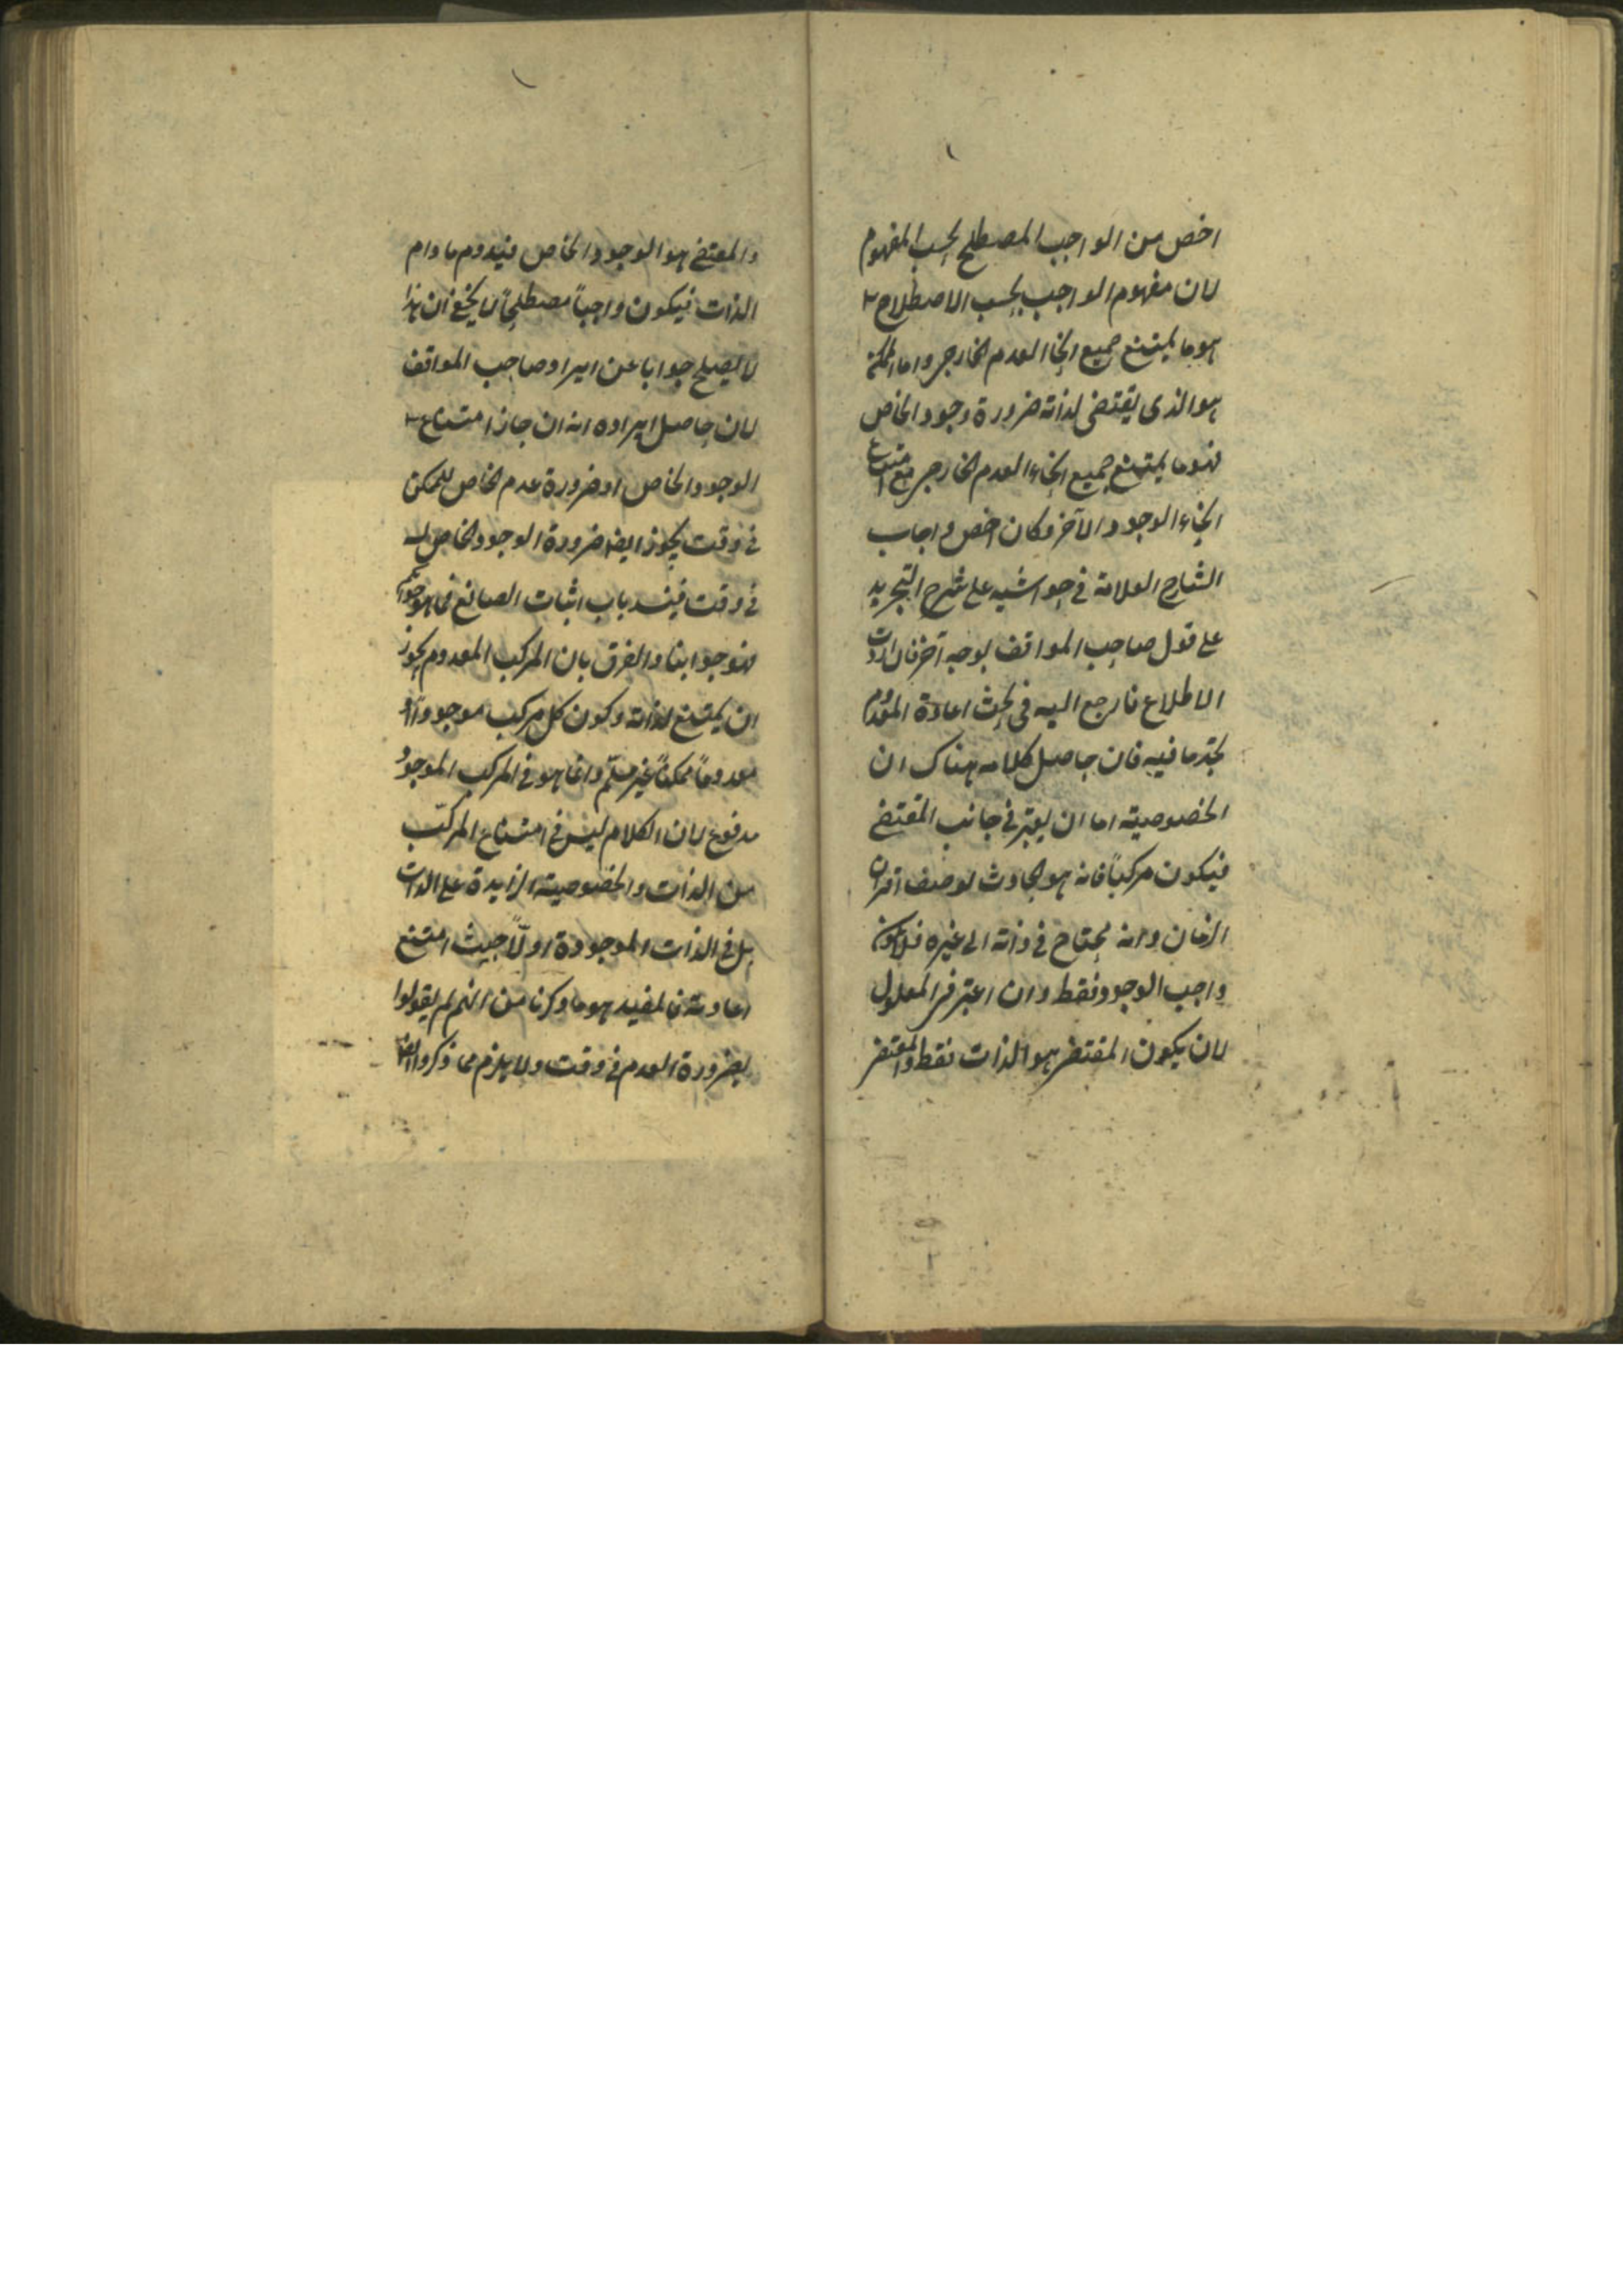 اخص من الواجب المصطلح بحسب المفهوم
لان مفهوم الواجب بحسب الاصطلاح
هو ما يمتنع جميع انحاء العدم الخارجي واما
هو الذي يقتضي لذاته ضرورة وجود الخاص
فهو ما يمتنع جميع انحاء العدم الخارجي مع امتناع
انحاء الوجود الآخر وكان اخص واجاب
الشارح العلامة في حواشيه على شرح التجريد
على قول صاحب المواقف بوجه آخر فان اردت
الاطلاع فارجع اليه في بحث اعادة المعدوم
تجد ما فيه فان حاصل كلامه هناك ان
الخصوصية اما ان يعتبر في جانب المقتضي
فيكون مركباً فانه هو الحادث لوصف اقتران
الزمان وانه يحتاج في ذاته الى غيره فلا يكون
واجب الوجود فقط وان اعتبر في المعلول
لان يكون المقتضي هو الذات فقط والمقتضي
والمقتضي هو الوجود الخاص فيدوم ما دام
الذات فيكون واجباً مصطلحاً لا يخفى ان هذا
لا يصلح جوابا عن ايراد صاحب المواقف
لان حاصل ايراده انه ان جاز امتناع
الوجود الخاص او ضرورة عدم الخاص للممكن
في وقت يجوز ايضا ضرورة الوجود الخاص له
في وقت فينسد باب اثبات الصانع فما هو جوابكم
فهو جوابنا والفرق بان المركب المعدوم يجوز
ان يمتنع لذاته وكون كل مركب موجوداً او
معدوماً ممكناً غير مسلّم وانما هو في المركب الموجود
مدفوع لان الكلام ليس في امتناع المركّب
من الذات والخصوصية الزايدة على الذات
بل في الذات الموجودة اولاً حيث امتنع
اعادته فالمفيد هو ما ذكرنا من انهم لم يقولوا
بضرورة العدم في وقت ولا يلزم مما ذكروا